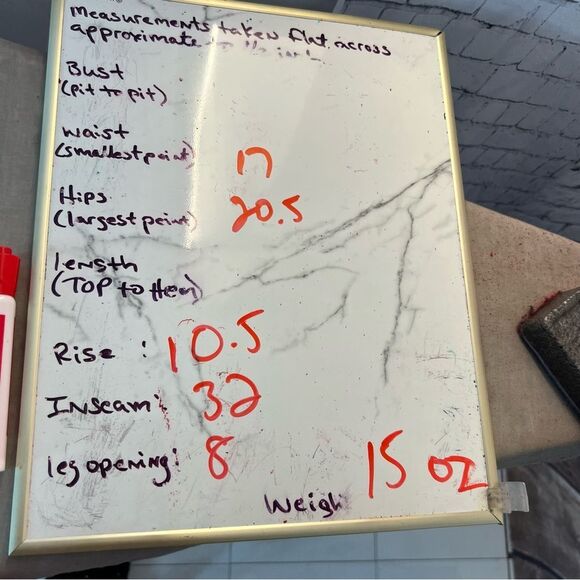 measurements taken flat across
approximate
Bust
(pit to pit)
waist
(smallest point) 17
Hips
(largest point) 20.5
length
(TOP to Hem)
Rise : 10.5
Inseam: 32
leg opening: 8
15 oz
Weigh